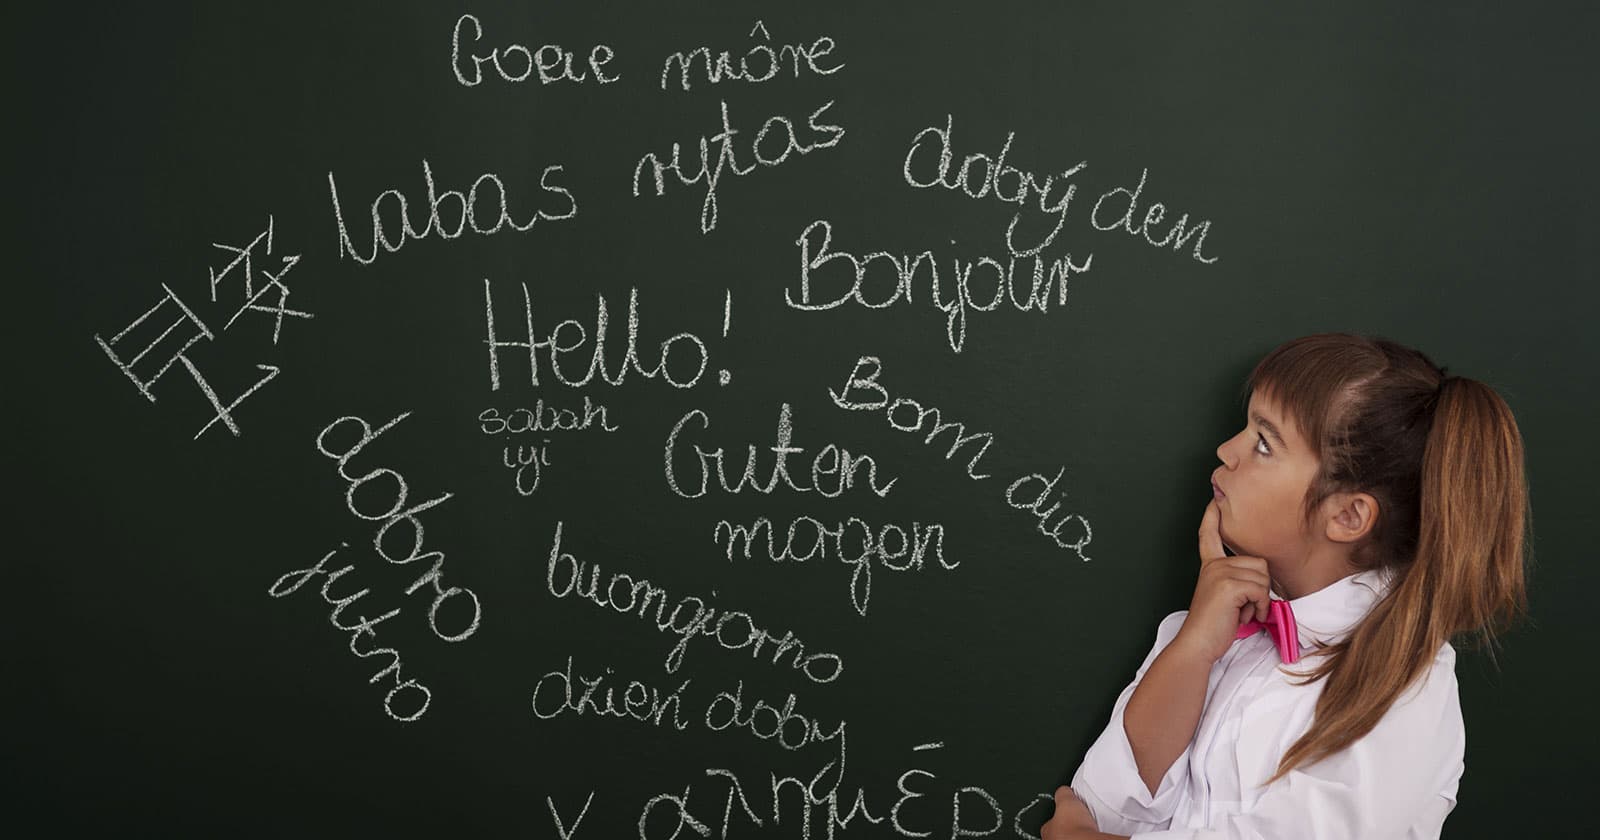 Goeie môre
labas rytas
dobrý den
早安
Bonjour
Hello!
sabah
iyi
Bom dia
Guten
morgen
dobro
jutro
buongiorno
dzień doby
καλημέρα